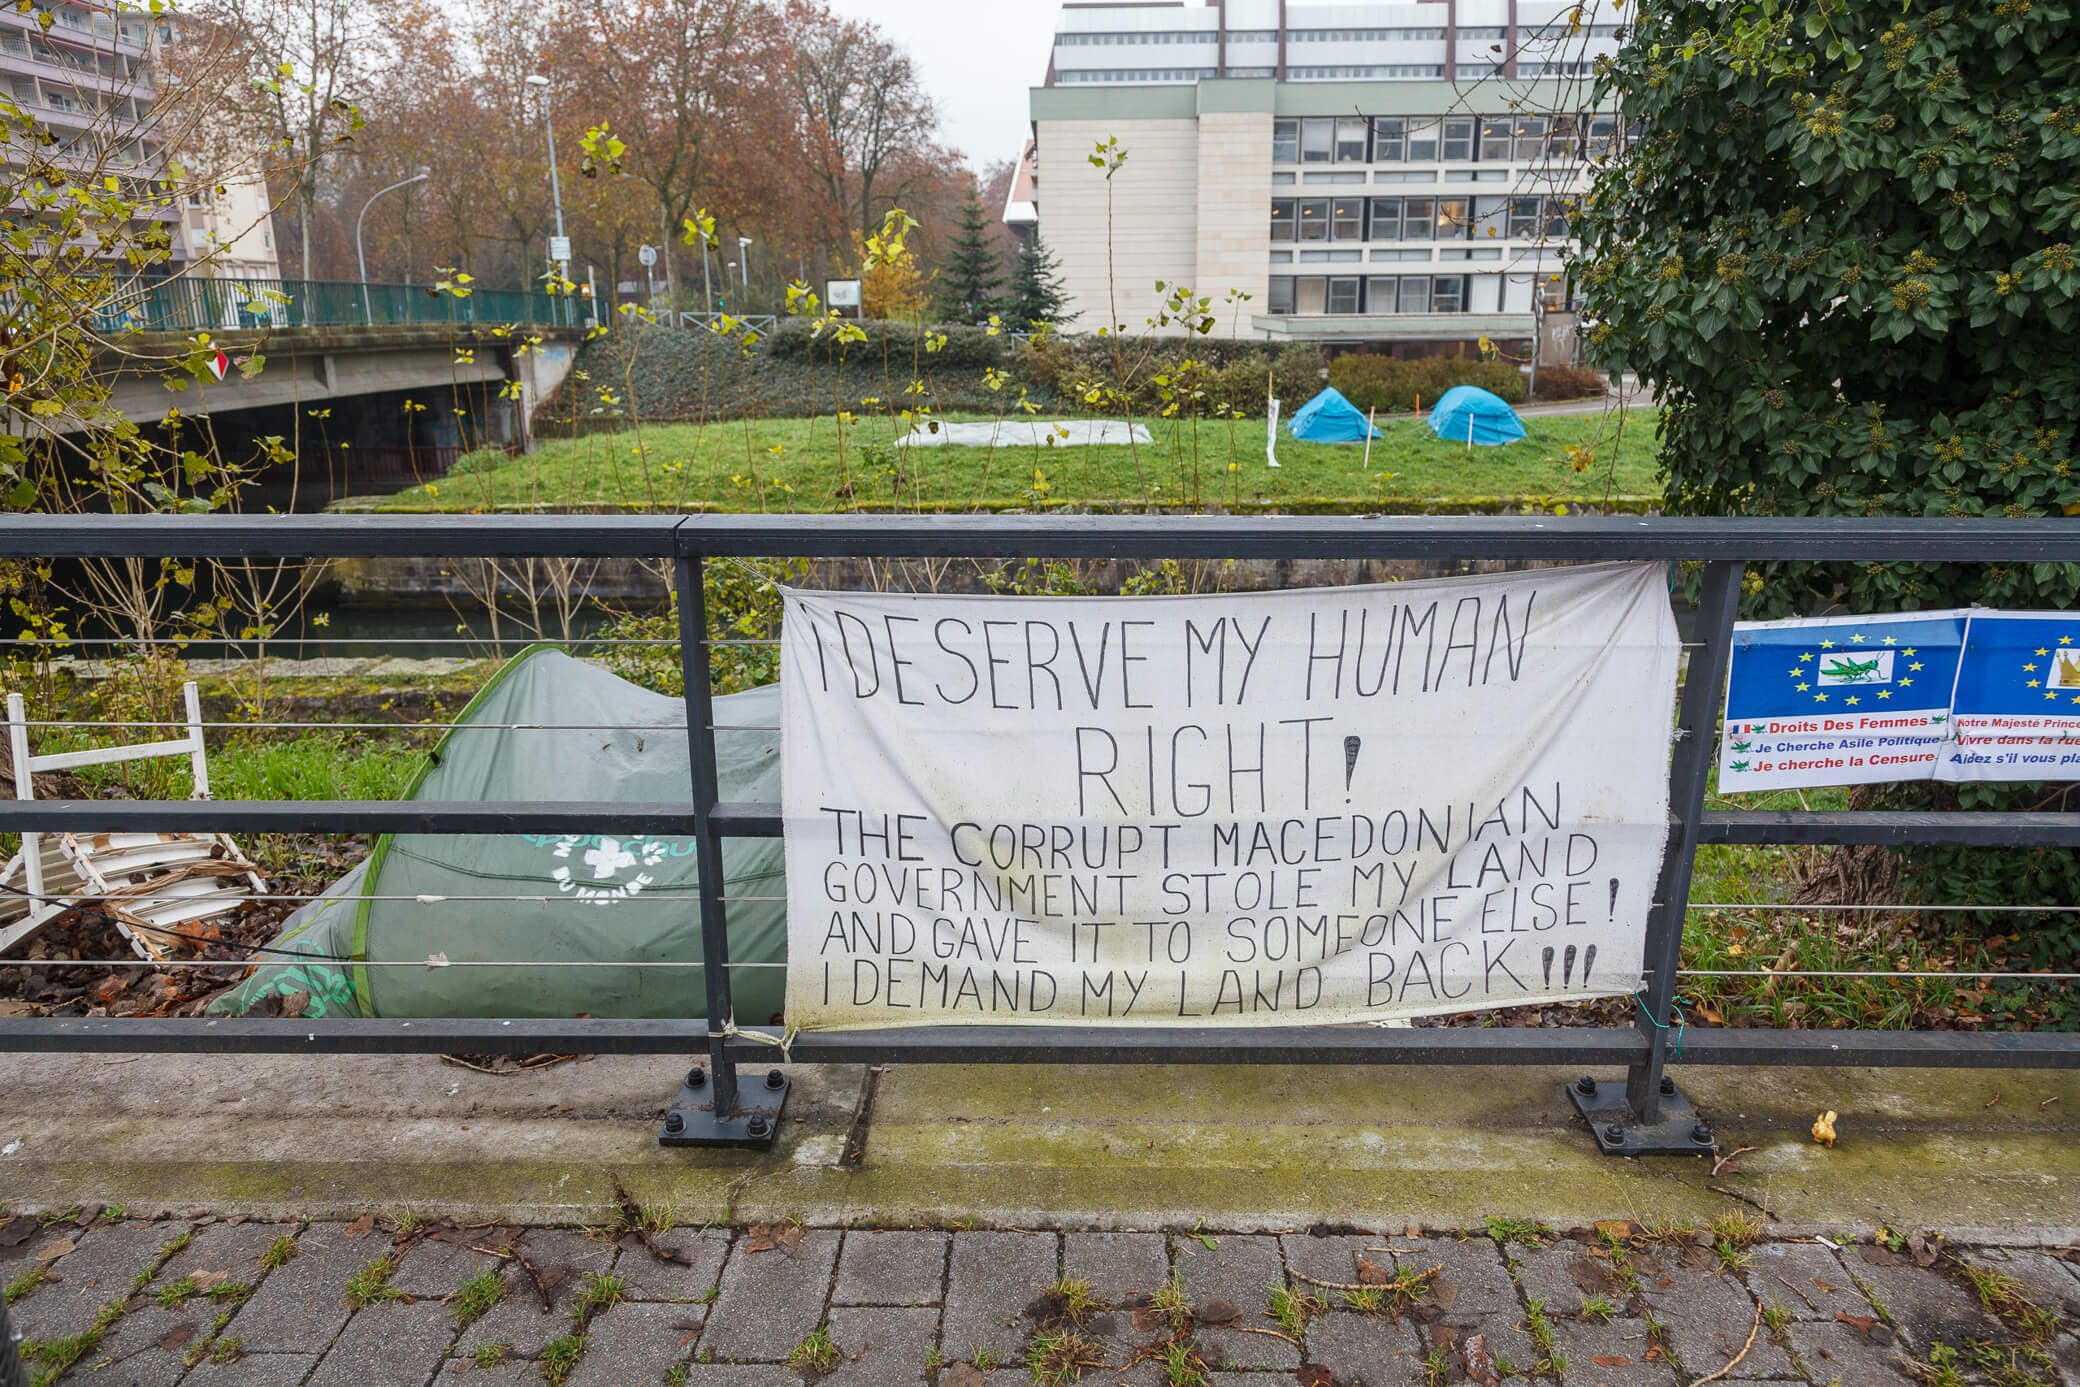 I DESERVE MY HUMAN
RIGHT!
THE CORRUPT MACEDONIAN
GOVERNMENT STOLE MY LAND
AND GAVE IT TO SOMEONE ELSE!
I DEMAND MY LAND BACK!!!
Droits Des Femmes
Je Cherche Asile Politique
Je cherche la Censure
Notre Majesté Prince
Vivre dans la rue
Aidez s'il vous pla
DU MONDE